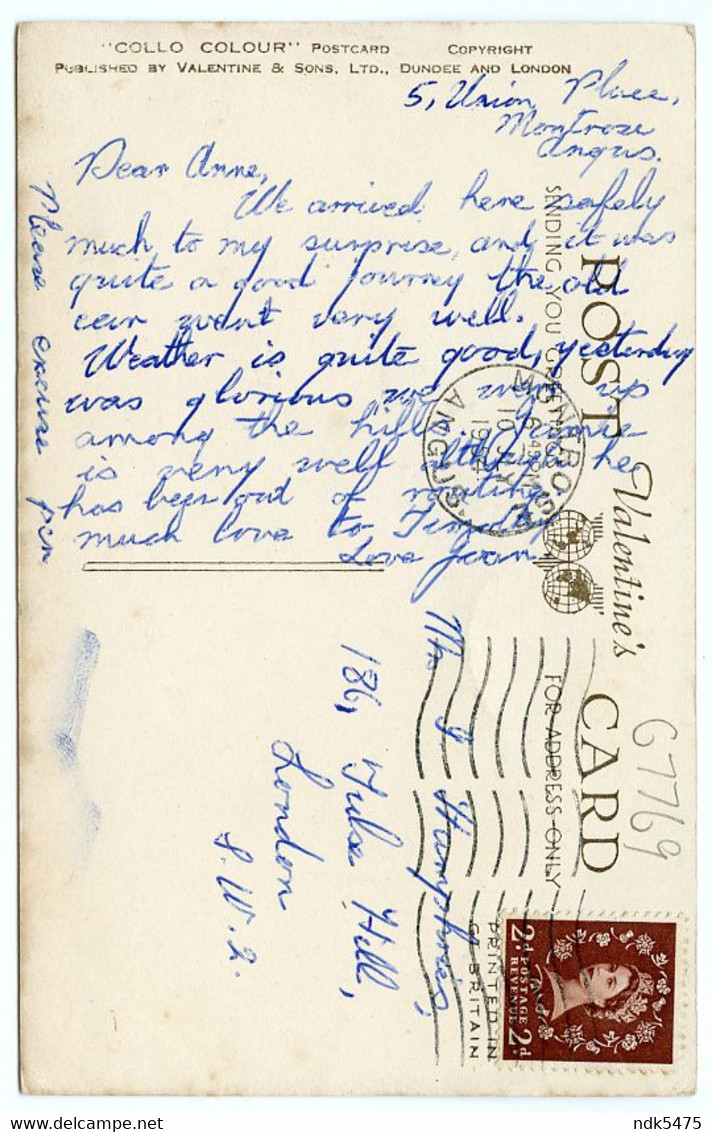 "COLLO COLOUR" POSTCARD COPYRIGHT
PUBLISHED BY VALENTINE & SONS, LTD., DUNDEE AND LONDON
5, Union Place,
Montrose
Angus.
Dear Anne,
We arrived here safely
much to my surprise, and it was
quite a good journey the old
car went very well.
Weather is quite good, yesterday
was glorious we went up
among the hills.
is very well although he
has been out of
much love to Timothy
Love Jean.
Please excuse pen
SENDING YOU GREETINGS
POST CARD
Valentine's
FOR ADDRESS ONLY
MONTROSE
ANGUS
Humphries,
186, Tulse Hill,
London
S.W.2.
67769
PRINTED IN
GT. BRITAIN
2d POSTAGE REVENUE 2d
ndk5475